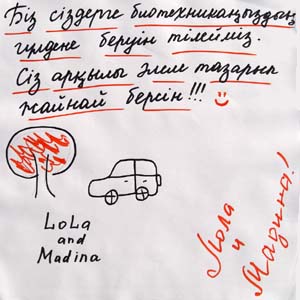 Біз сіздерге биотехникаңыздың
гүлдене беруін тілейміз.
Сіз арқылы Әлем тазарып
жайнай берсін!!!
LoLa
and
Madina
Лола
и
Мадина!